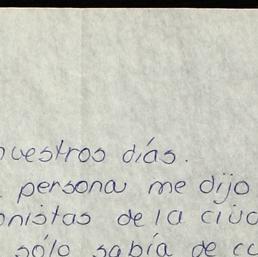 nuestros días.
persona me dijo
onistas de la ciud
sólo sabía de cu